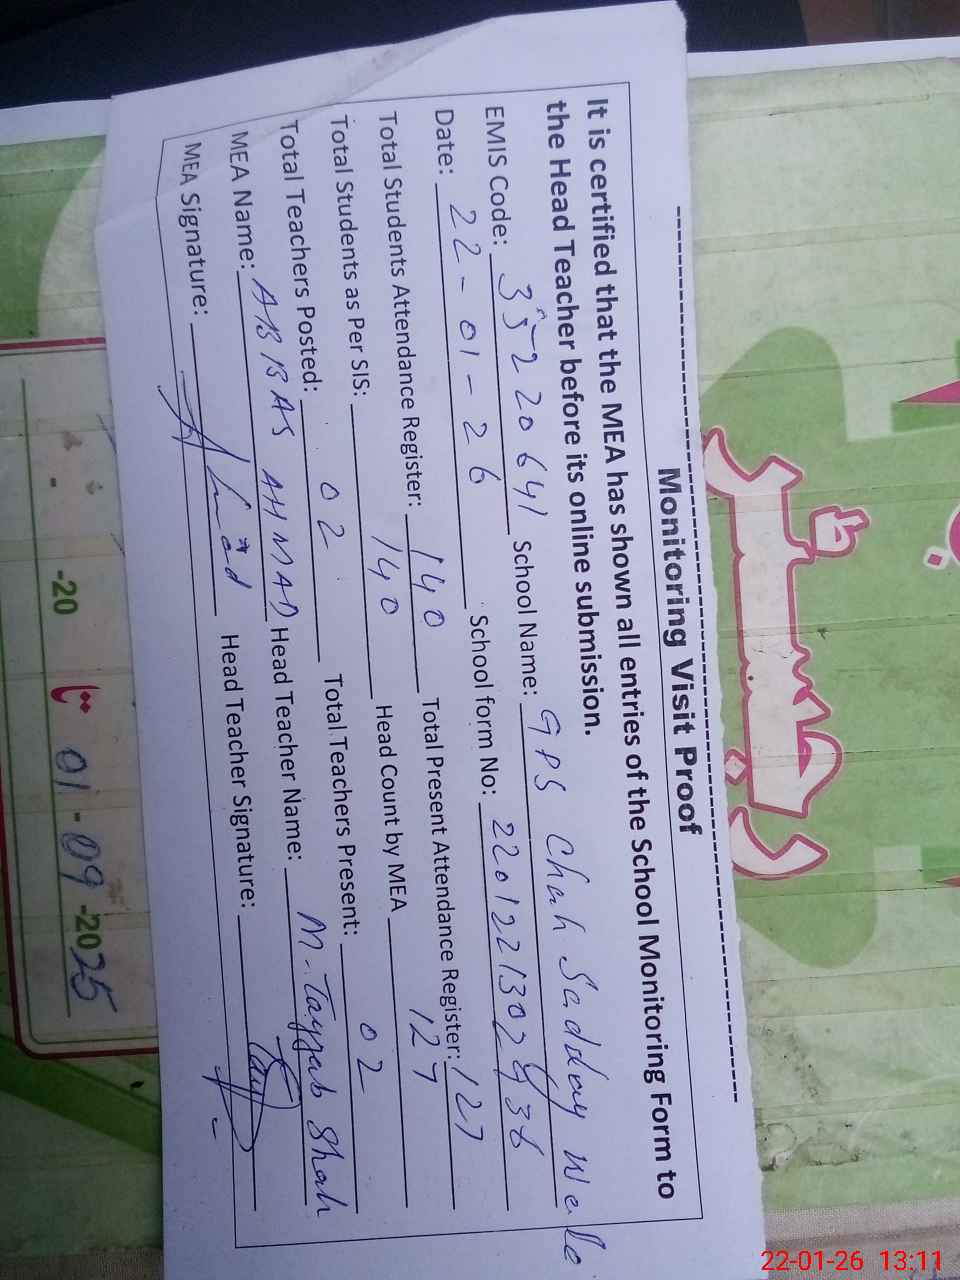 Monitoring Visit Proof
It is certified that the MEA has shown all entries of the School Monitoring Form to
the Head Teacher before its online submission.
EMIS Code: 35220641 School Name: GPS Chah Sadday Wala
Date: 22-01-26 School form No: 2201221302
Total Students Attendance Register: 140 Total Present Attendance Register: 127
Total Students as Per SIS: 140 Head Count by MEA 127
Total Teachers Posted: 02 Total Teachers Present: 02
MEA Name: ABBAS AHMAD Head Teacher Name: M-Tayyab Shah
MEA Signature: Head Teacher Signature:
رجسٹر
-20 تا 01-09-2025
22-01-26 13:11